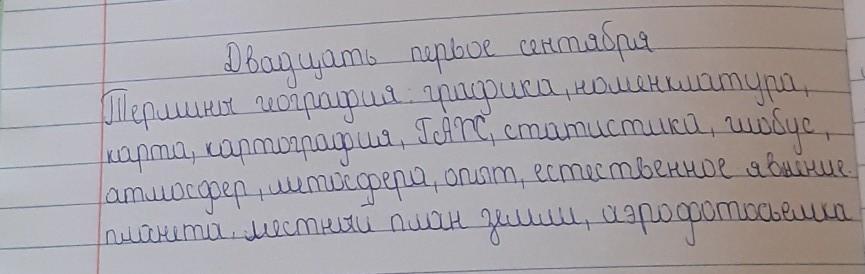 Двадцать первое сентября
Термины география: графика, номенклатура,
карта, картография, ГАПС, статистика, глобус,
атмосфер, литосфера, опыт, естественное явление.
планета. местный план земли, аэрофотосъемка